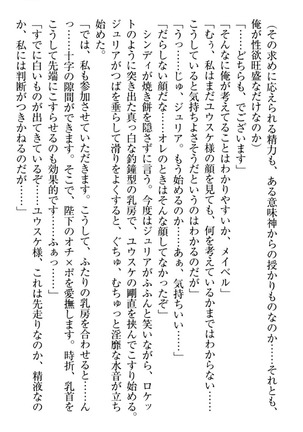 (その求めに応えられる精力も、ある意味神からの授かりものなのか……それとも、
俺が性欲旺盛なだけなのか)
「……どちらも、でございます」
「そんなに俺が考えてることはわかりやすいか、メイベル」
「わからない。私はまだユウスケ様の顔を見ても、何を考えているかまではわからな
いのだが……とりあえず気持ちよさそうだというのはわかるのだが」
「うっ……じゅ、ジュリア、もう始めるのか……ああ、気持ちいい……」
「だらしない顔だな……オレのときはそんな顔してなかったのに」
 シンディが焼き餅を隠さずに言う。今度はジュリアがふふんと笑いながら、ロケッ
トのように突き出た真っ白な釣鐘型の乳房で、ユウスケの剛直を挟んでこすり始める。
ジュリアがつばを垂らして滑りをよくすると、ぐちゅ、むちゅっと淫靡な水音が立ち
始めた。
「では、私も参加させていただきます。こうして、ふたりの乳房を合わせると……ん
っ……十字の隙間ができます。そこで、陛下のオチ×ポを愛撫します。時折、乳首を
こうして先端にこすらせるのも効果的です……ふぁっ……」
「すでに白いものが出てきているぞ……ユウスケ様、これは先走りなのか、精液なの
か、私には判断がつきかねるのだが……」